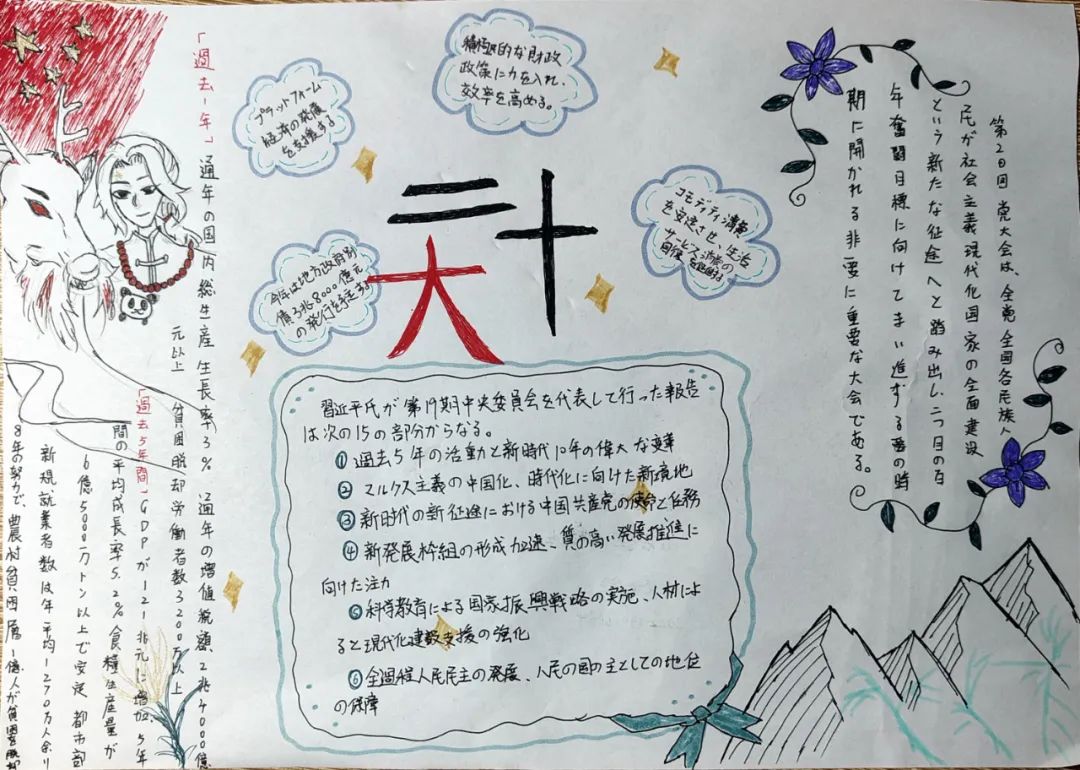 「過去一年」通年の国内総生産生長率3% 通年の増値税額2兆4000億
元以上 貧困脱却労働者数3200万以上
「過去5年間」GDPが121兆元に増加、5年
間の平均成長率5.2% 食糧生産量が
6億5000万トン以上で安定 都市部
新規就業者数は年平均1270万人余り
8年の努力で、農村貧困層1億人が貧困を脱却
プラットフォーム
経済の発展
を支援する
積極的な財政
政策に力を入れ、
効率を高める。
今年は地方政府特別
債3兆8000億元
の発行を予定する。
コモディティ消費
を安定させ、生活
サービス消費の
回復を
二十
大
第20回党大会は、全党全国各民族人
民が社会主義現代化国家の全面建設
という新たな征途へと踏み出し、二つ目の百
年奮闘目標に向けてまい進する
期に開かれる非常に重要な大会である。
習近平氏が第19期中央委員会を代表して行った報告
は次の15の部分からなる。
① 過去5年の活動と新時代10年の偉大な変革
② マルクス主義の中国化、時代化に向けた新境地
③ 新時代の新征途における中国共産党の使命と任務
④ 新発展枠組の形成加速、質の高い発展推進に
向けた注力
⑤ 科学教育による国家振興戦略の実施、人材によ
ると現代化建設支援の強化
⑥ 全過程人民民主の発展、人民の国の主としての地位
の保障